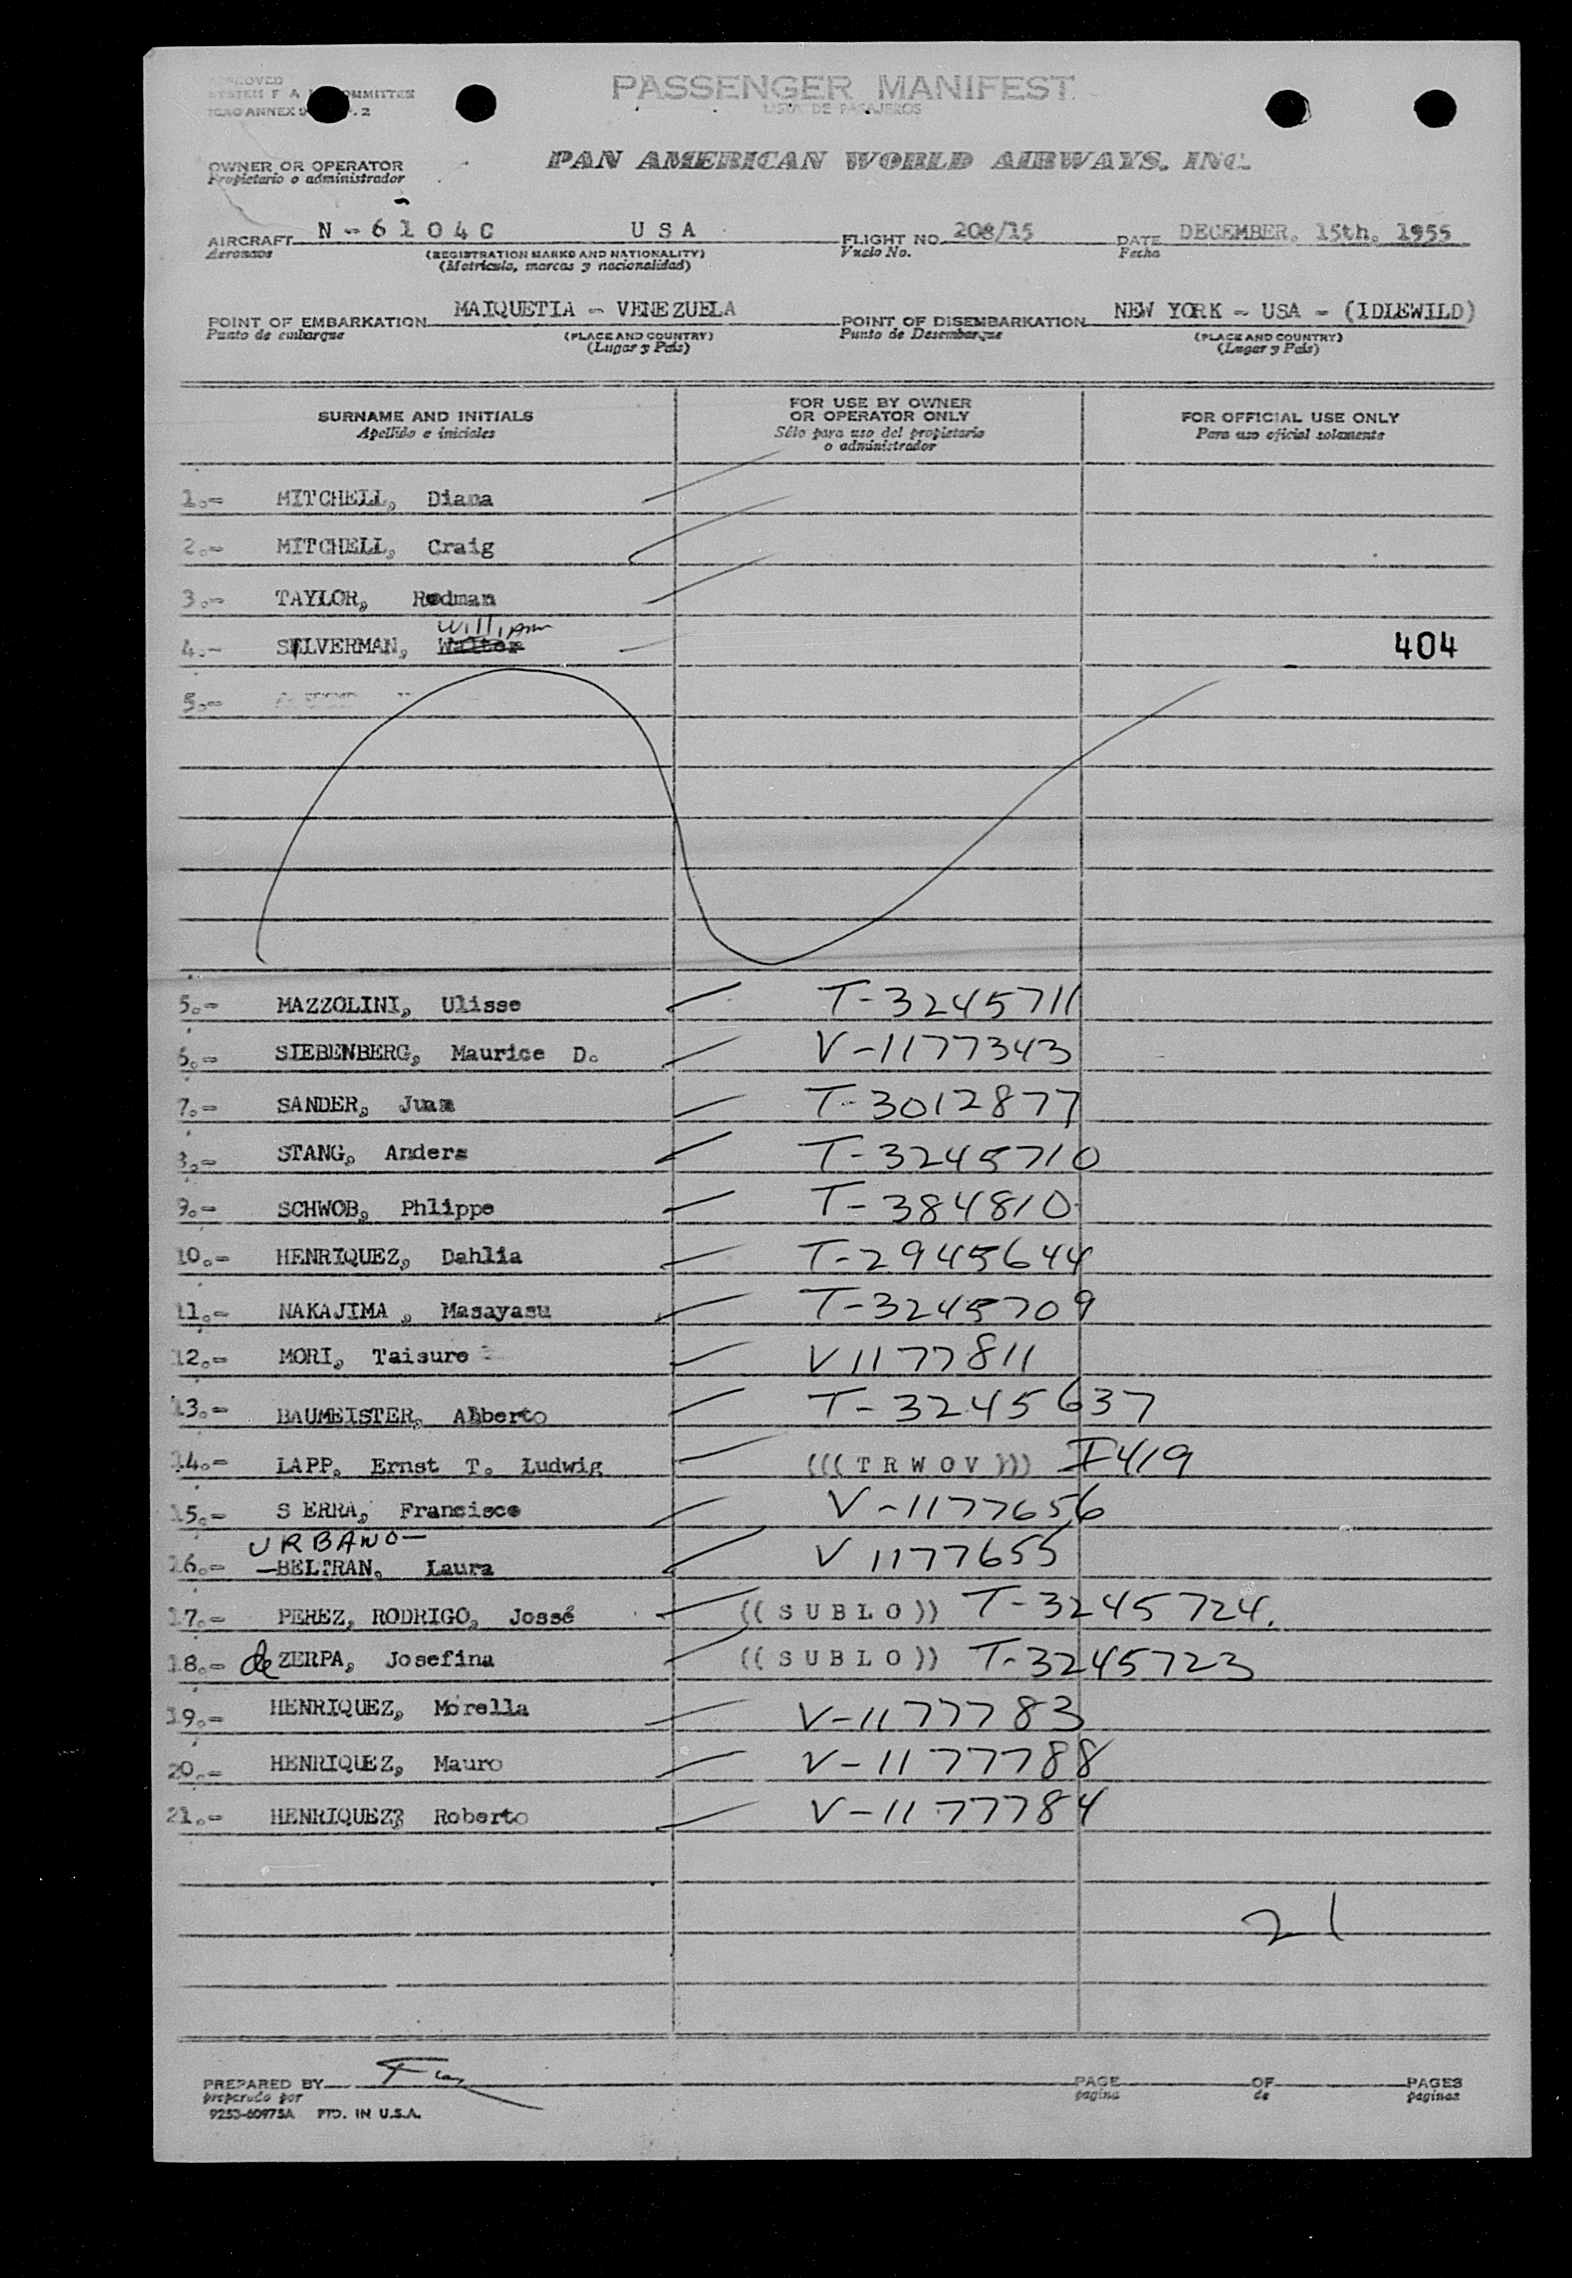 APPROVED
SYSTEM F A L COMMITTEE
ICAO ANNEX 9 . 2
PASSENGER MANIFEST
LISTA DE PASAJEROS
OWNER OR OPERATOR
Propietario o administrador
PAN AMERICAN WORLD AIRWAYS, INC.
AIRCRAFT N-6104C USA FLIGHT NO. 208/15 DATE DECEMBER, 15th, 1955
Aeronave (REGISTRATION MARKS AND NATIONALITY) Vuelo No. Fecha
(Matricula, marcas y nacionalidad)
POINT OF EMBARKATION MAIQUETIA - VENEZUELA POINT OF DISEMBARKATION NEW YORK - USA - (IDLEWILD)
Punto de embarque (PLACE AND COUNTRY) Punto de Desembarque (PLACE AND COUNTRY)
(Lugar y País) (Lugar y País)
SURNAME AND INITIALS FOR USE BY OWNER OR OPERATOR ONLY FOR OFFICIAL USE ONLY
Apellido e iniciales Sólo para uso del propietario o administrador Para uso oficial solamente
1.- MITCHELL, Diana
2.- MITCHELL, Craig
3.- TAYLOR, Redman
William
4.- SILVERMAN, Walter 404
5.-
5.- MAZZOLINI, Ulisse T-3245711
6.- SIEBENBERG, Maurice D. V-1177343
7.- SANDER, Juan T-3012877
8.- STANG, Anders T-3245710
9.- SCHWOB, Phlippe T-384810
10.- HENRIQUEZ, Dahlia T-2945644
11.- NAKAJIMA, Masayasu T-3245709
12.- MORI, Taisuro V1177811
13.- BAUMEISTER, Alberto T-3245637
14.- LAPP, Ernst T. Ludwig (((TRWOV))) I419
15.- SERRA, Francisco V-1177656
URBANO-
16.- -BELTRAN, Laura V1177655
17.- PEREZ, RODRIGO, Jossé ((SUBLO)) T-3245724.
18.- de ZERPA, Josefina ((SUBLO)) T-3245723
19.- HENRIQUEZ, Morella V-1177783
20.- HENRIQUEZ, Mauro V-1177788
21.- HENRIQUEZ, Roberto V-1177784
21
PREPARED BY PAGE OF PAGES
preparado por pagina de paginas
9253-60975A PTD. IN U.S.A.